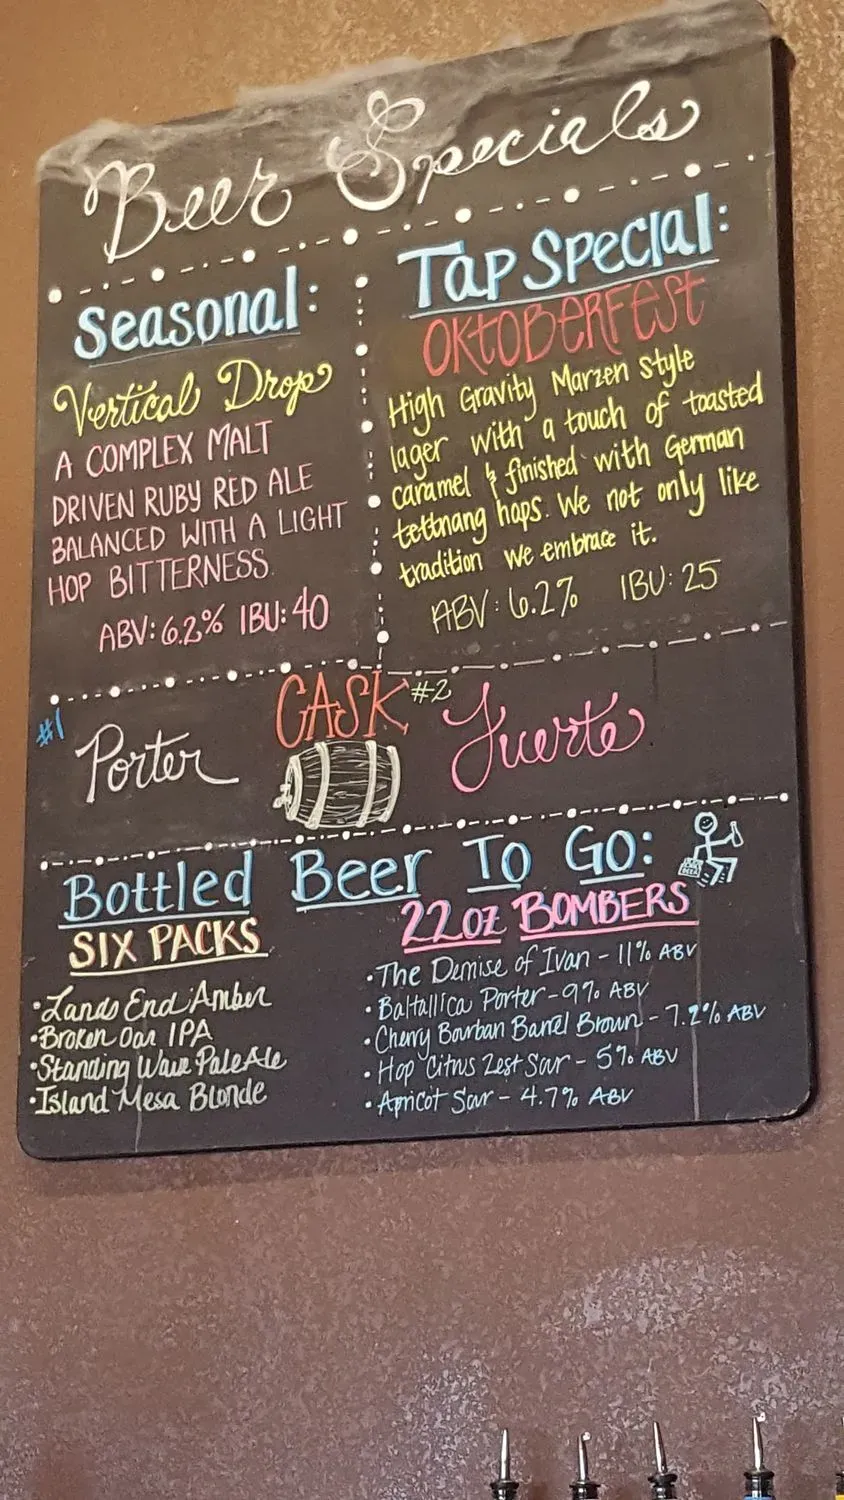 Beer Specials
Seasonal:
Vertical Drop
A COMPLEX MALT
DRIVEN RUBY RED ALE
BALANCED WITH A LIGHT
HOP BITTERNESS.
ABV: 6.2% IBU: 40
Tap Special:
OKTOBERFEST
High Gravity Marzen Style
lager with a touch of toasted
caramel & finished with German
tettnang hops. We not only like
tradition we embrace it.
ABV: 6.2% IBU: 25
CASK
#1
Porter
#2
Fuerte
Bottled Beer To Go:
BEER
SIX PACKS
• Lands End Amber
• Broken Oar IPA
• Standing Wave Pale Ale
• Island Mesa Blonde
22oz BOMBERS
• The Demise of Ivan - 11% ABV
• Baltallica Porter - 9% ABV
• Cherry Bourban Barrel Brown - 7.2% ABV
• Hop Citrus Zest Sour - 5% ABV
• Apricot Sour - 4.7% ABV